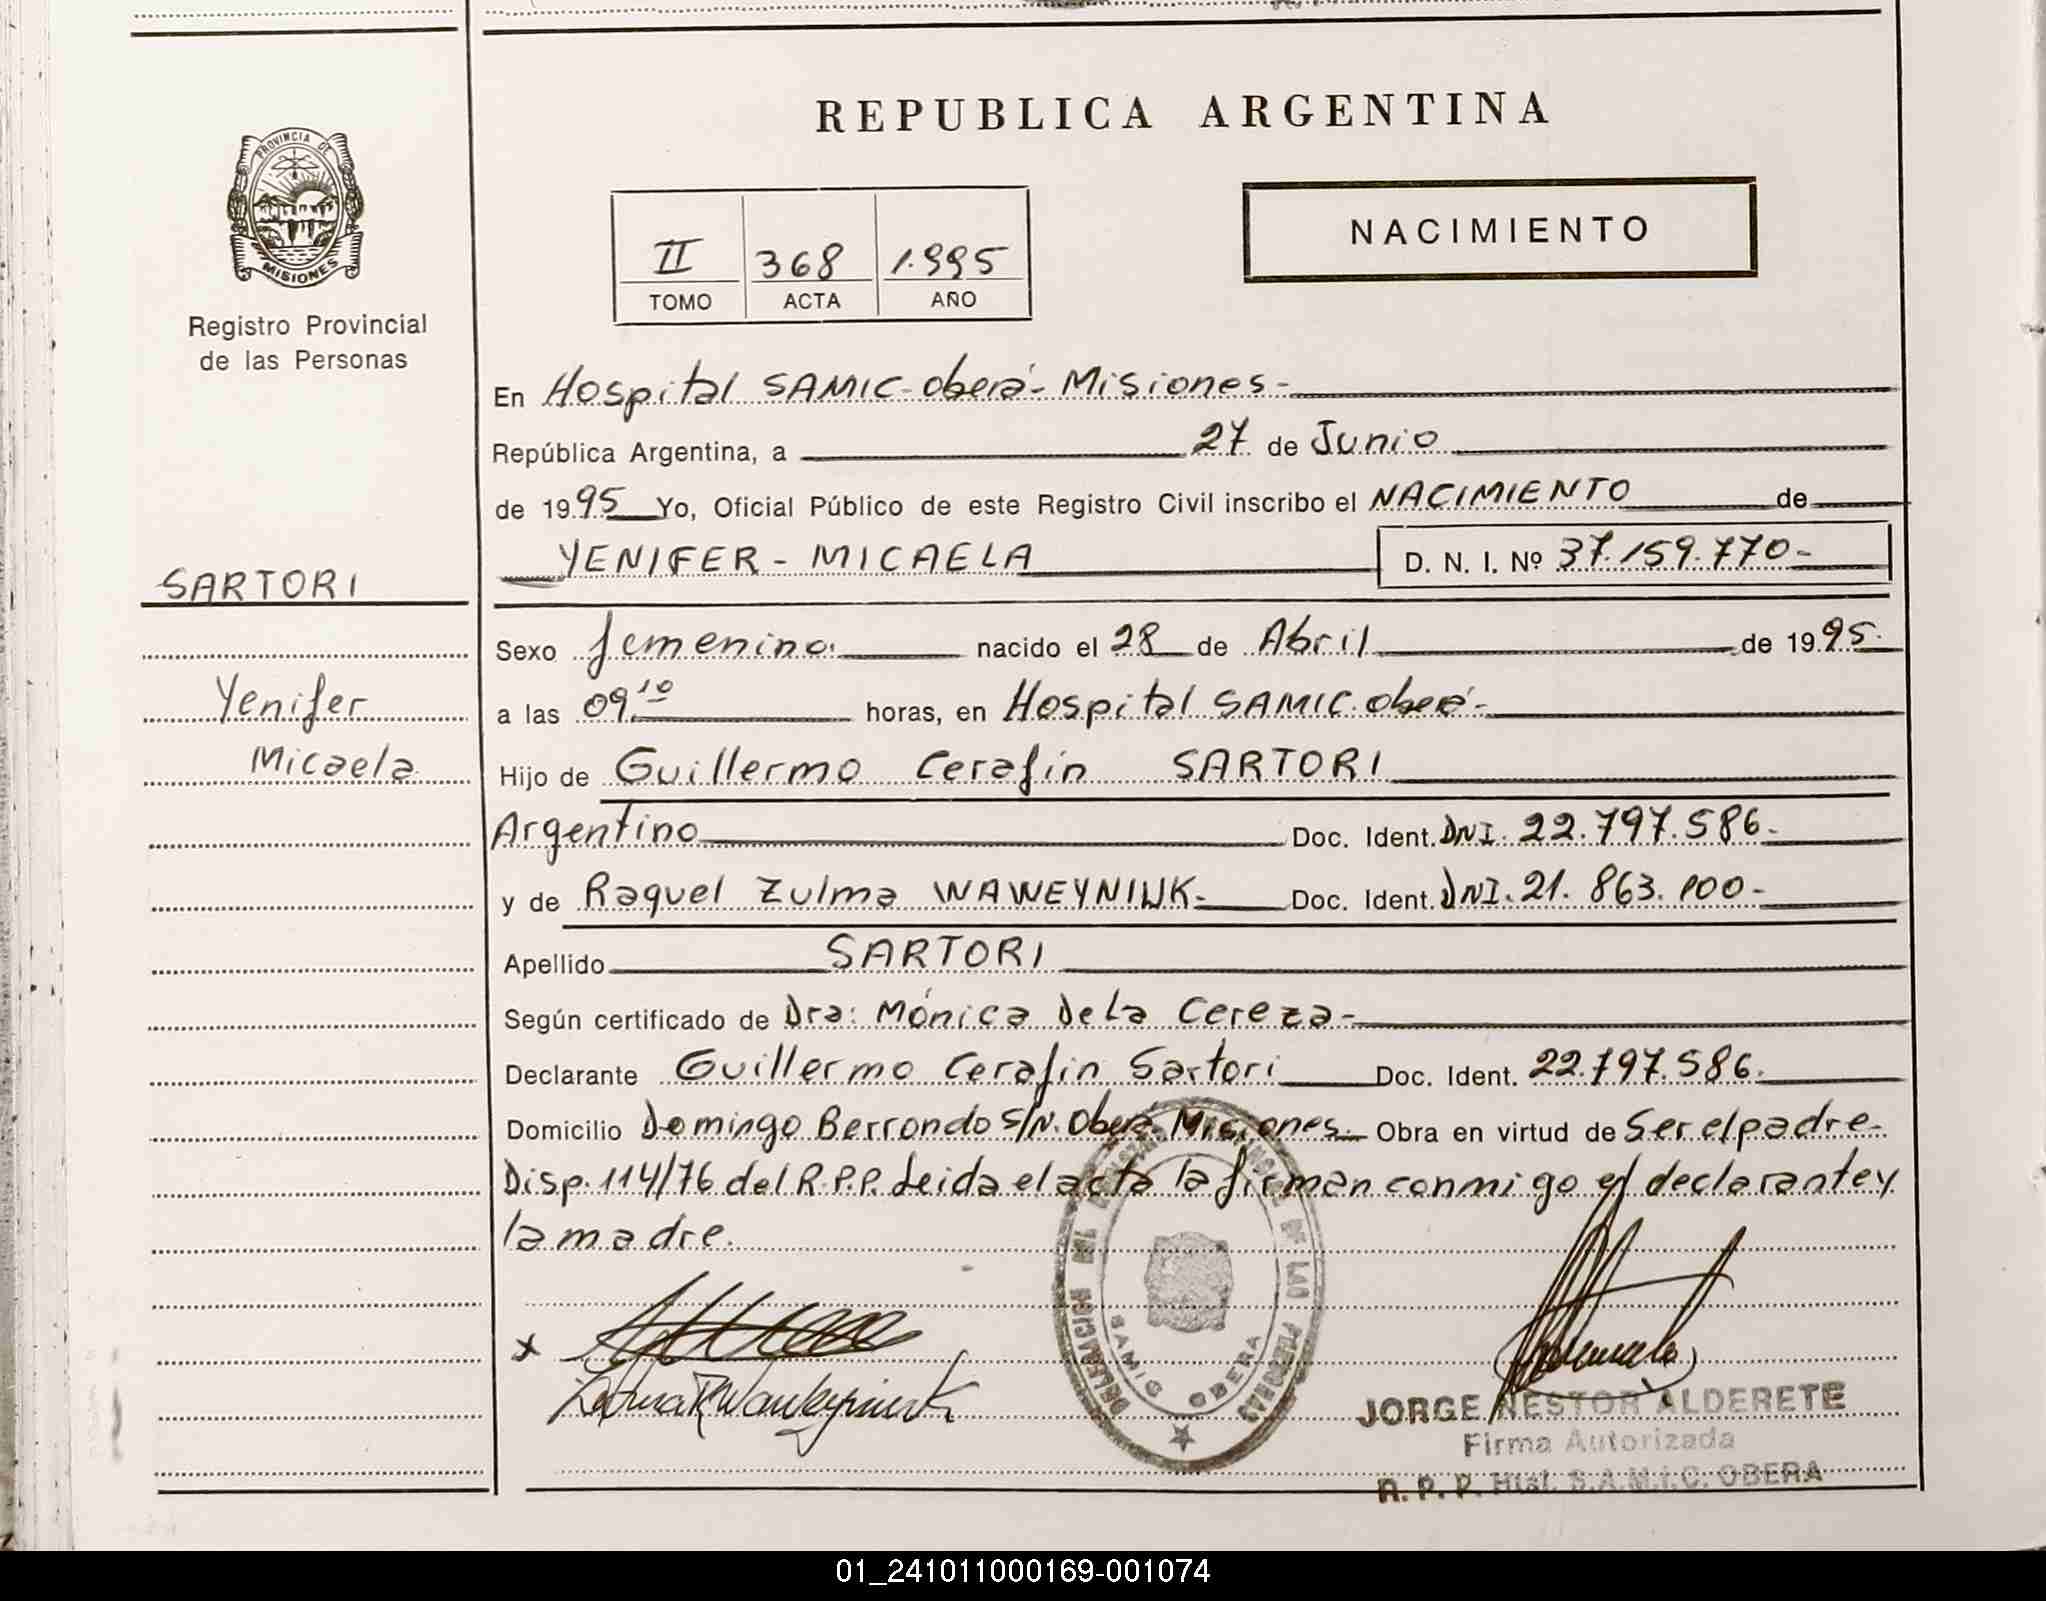 REPUBLICA ARGENTINA
PROVINCIA DE
MISIONES
Registro Provincial
de las Personas
II 368 1.995
TOMO ACTA AÑO
NACIMIENTO
SARTORI
Yenifer
Micaela
En Hospital SAMIC-Oberá- Misiones-
República Argentina, a 27 de Junio
de 1995 Yo, Oficial Público de este Registro Civil inscribo el NACIMIENTO de
YENIFER - MICAELA D. N. I. Nº 37.159.770-
Sexo femenino. nacido el 28 de Abril de 1995.
a las 09.10 horas, en Hospital SAMIC.Oberá-
Hijo de Guillermo Cerafin SARTORI
Argentino Doc. Ident. DNI. 22.797.586-
y de Raquel Zulma WAWEYNIUK- Doc. Ident. DNI. 21.863.100-
Apellido SARTORI
Según certificado de Dra: Mónica De La Cereza-
Declarante Guillermo Cerafin Sartori Doc. Ident. 22.797.586.
Domicilio Domingo Berrondo S/N. Oberá Misiones.- Obra en virtud de Ser el padre-
Disp. 114/76 del R.P.P. Leida el acta la firman conmigo el declarante y
la madre.
SAMIC OBERA
JORGE NESTOR ALDERETE
Firma Autorizada
R. P. P. Htal. S.A.M.I.C. OBERA
01_241011000169-001074